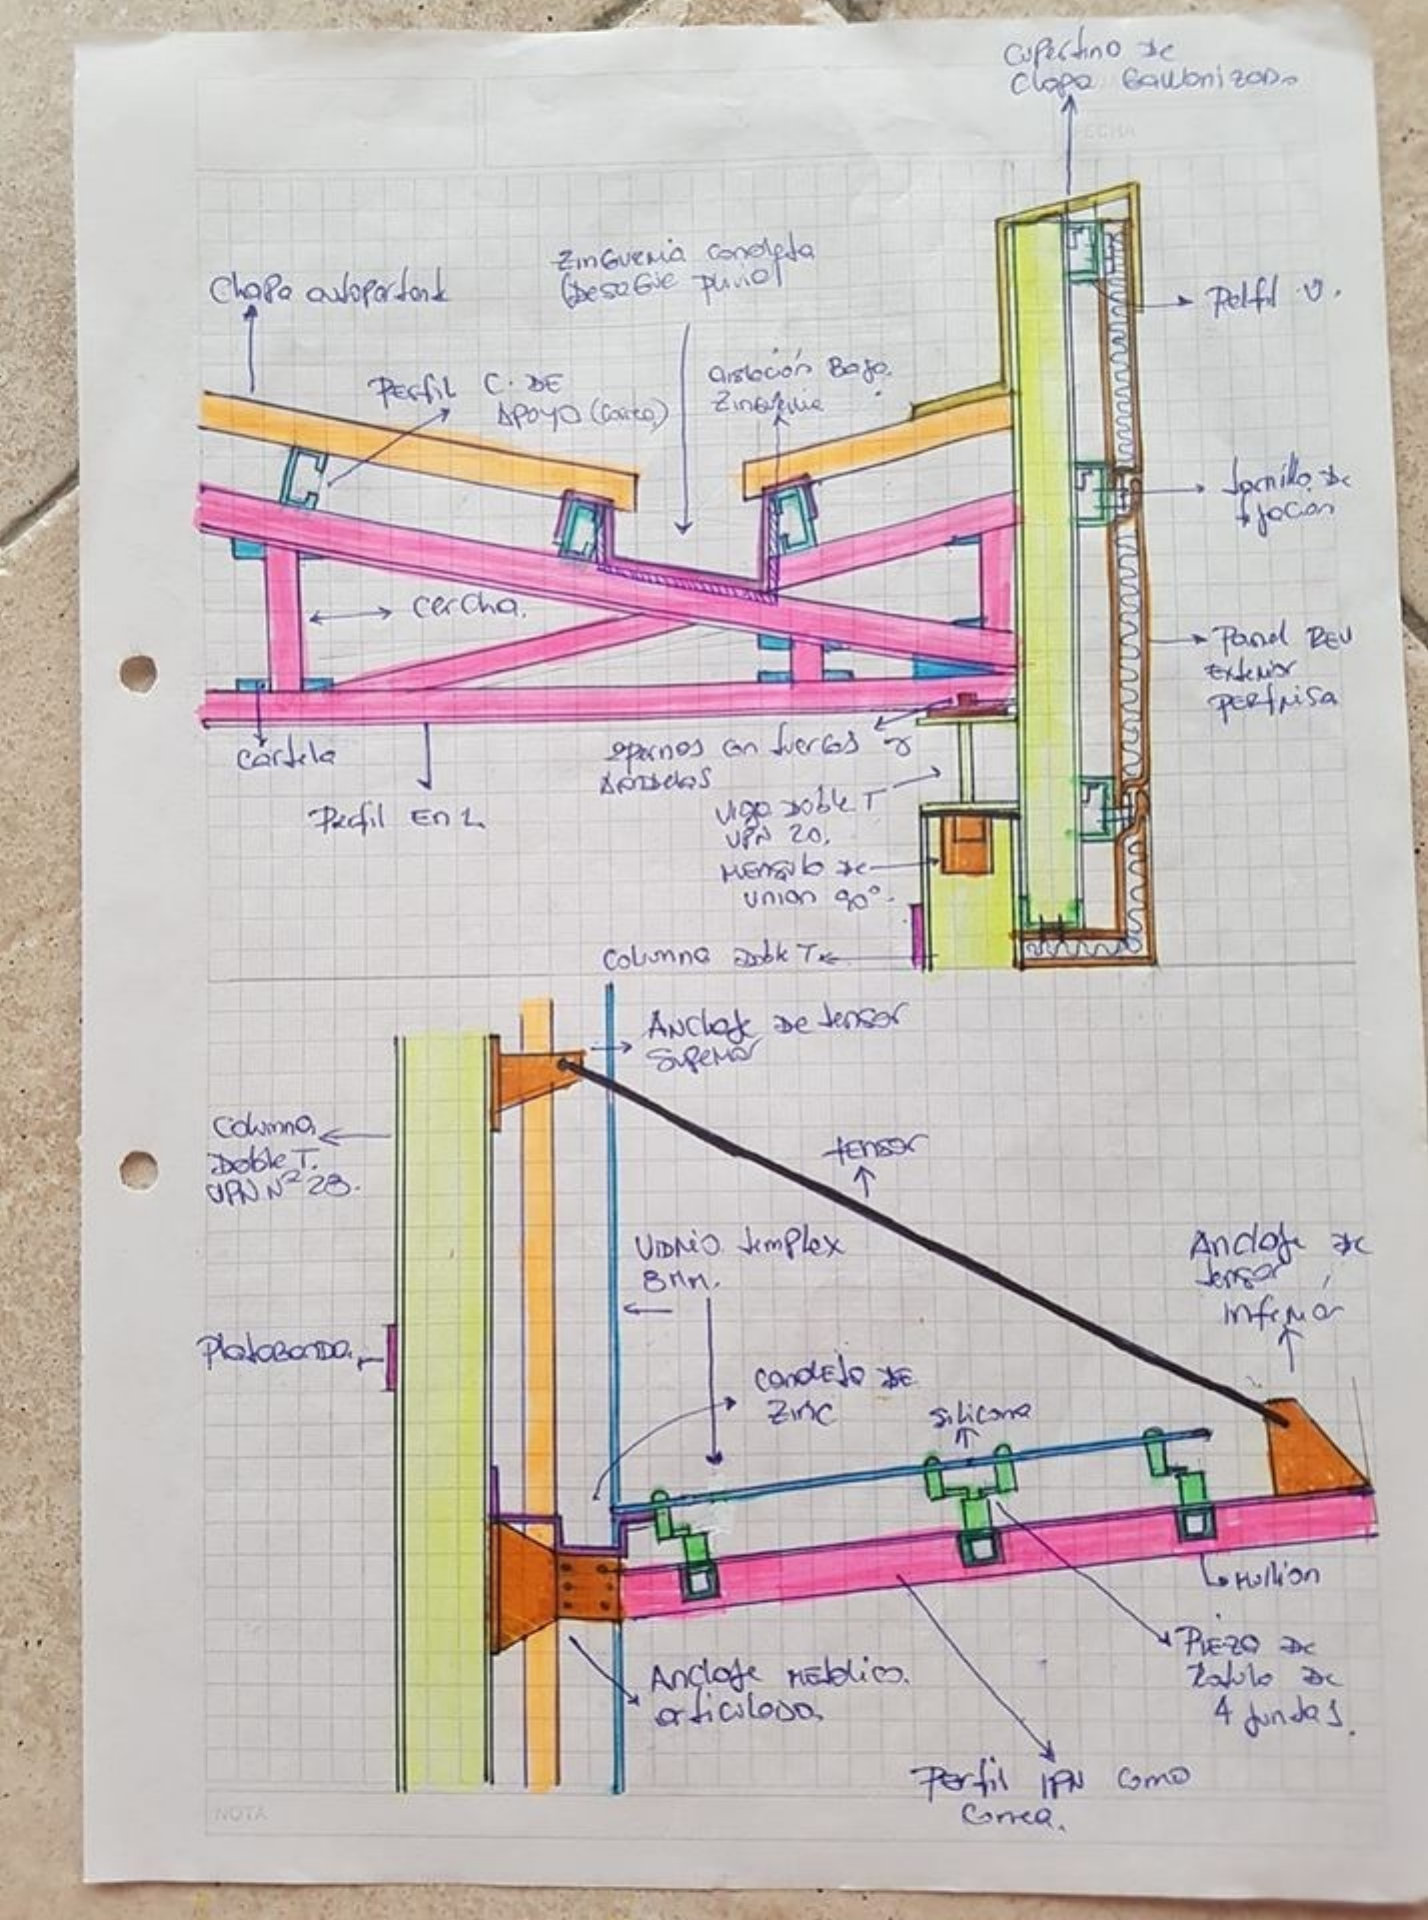 Cupertino de
Chapa Galvonizado
FECHA
Zinguenia Canoleta
(Desague pluvio)
Chapa autoportant
Perfil U.
Perfil C. DE
APOYO (Correa)
aislación Bajo
Zingueria
tornillo De
fijacion
cercha.
Panel REV
Exterior
PERFRISA
Cartela
Perfil En L
Epernos con tuercas y
Arandelas
Viga Doble T
UPN 20.
Mensula de
union 90°.
Columna Doble T
Anclaje De tensor
Superior
Columna
Doble T.
UPN Nº 28.
tensor
Vidrio templex
8mm.
Anclaje de
tensor
inferior
Platabanda
Canoleta DE
Zinc
Silicona
Mullion
Pieza de
Zatulo de
4 puntas.
Anclaje Metalico.
articulado.
Perfil IPN como
Correa.
NOTA